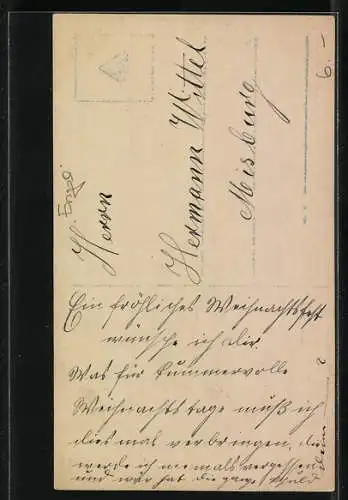 6.-
Herrn
Hermann Wittel
Misburg
Ein fröhliches Weihnachtsfest
wünsche ich dir.
Was für kummervolle
Weihnachtstage muß ich
diesmal verbringen, dies
werde ich niemals vergessen
und wer hat die ganze Schuld